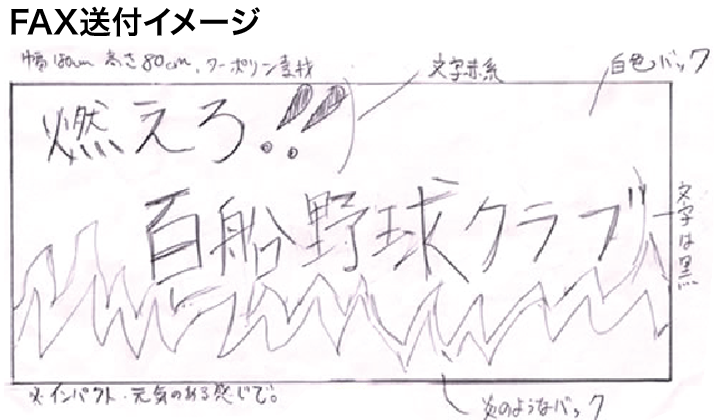 FAX送付イメージ
高さ80cm、ターポリン素材
文字赤系
白色バック
燃えろ!!
百船野球クラブ
文字は黒
※インパクト・元気のある感じで。
炎のようなバック